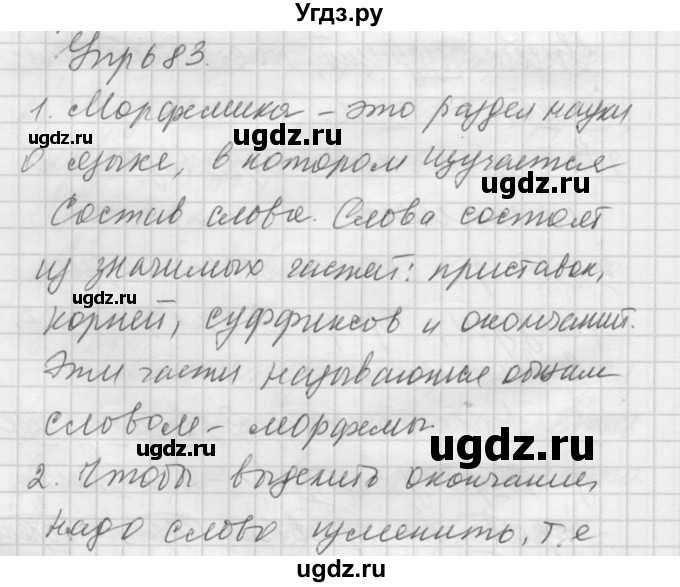 Угдз.ру
Упр 683.
1. Морфемика – это раздел науки
ugdz.ru
о языке, в котором изучается
ugdz.ru
состав слова. Слова состоят
из значимых частей: приставок,
ugdz.ru
корней, суффиксов и окончаний.
Эти части называются общим
словом – морфемы.
ugdz.ru
ugdz.ru
2. Чтобы выделить окончание,
надо слово изменить, т.е
ugdz.ru
ugdz.ru